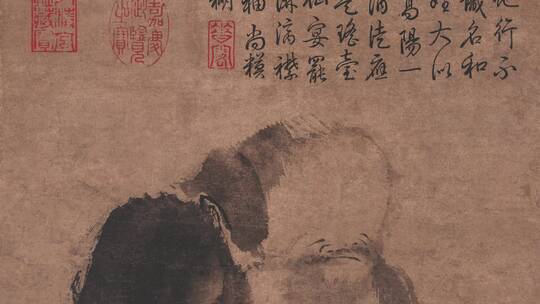 地行不
識名和
姓大似
高陽一
酒徒應
是瑤臺
仙宴罷
淋漓襟
袖尚模
糊
嘉慶
御覽
之寶